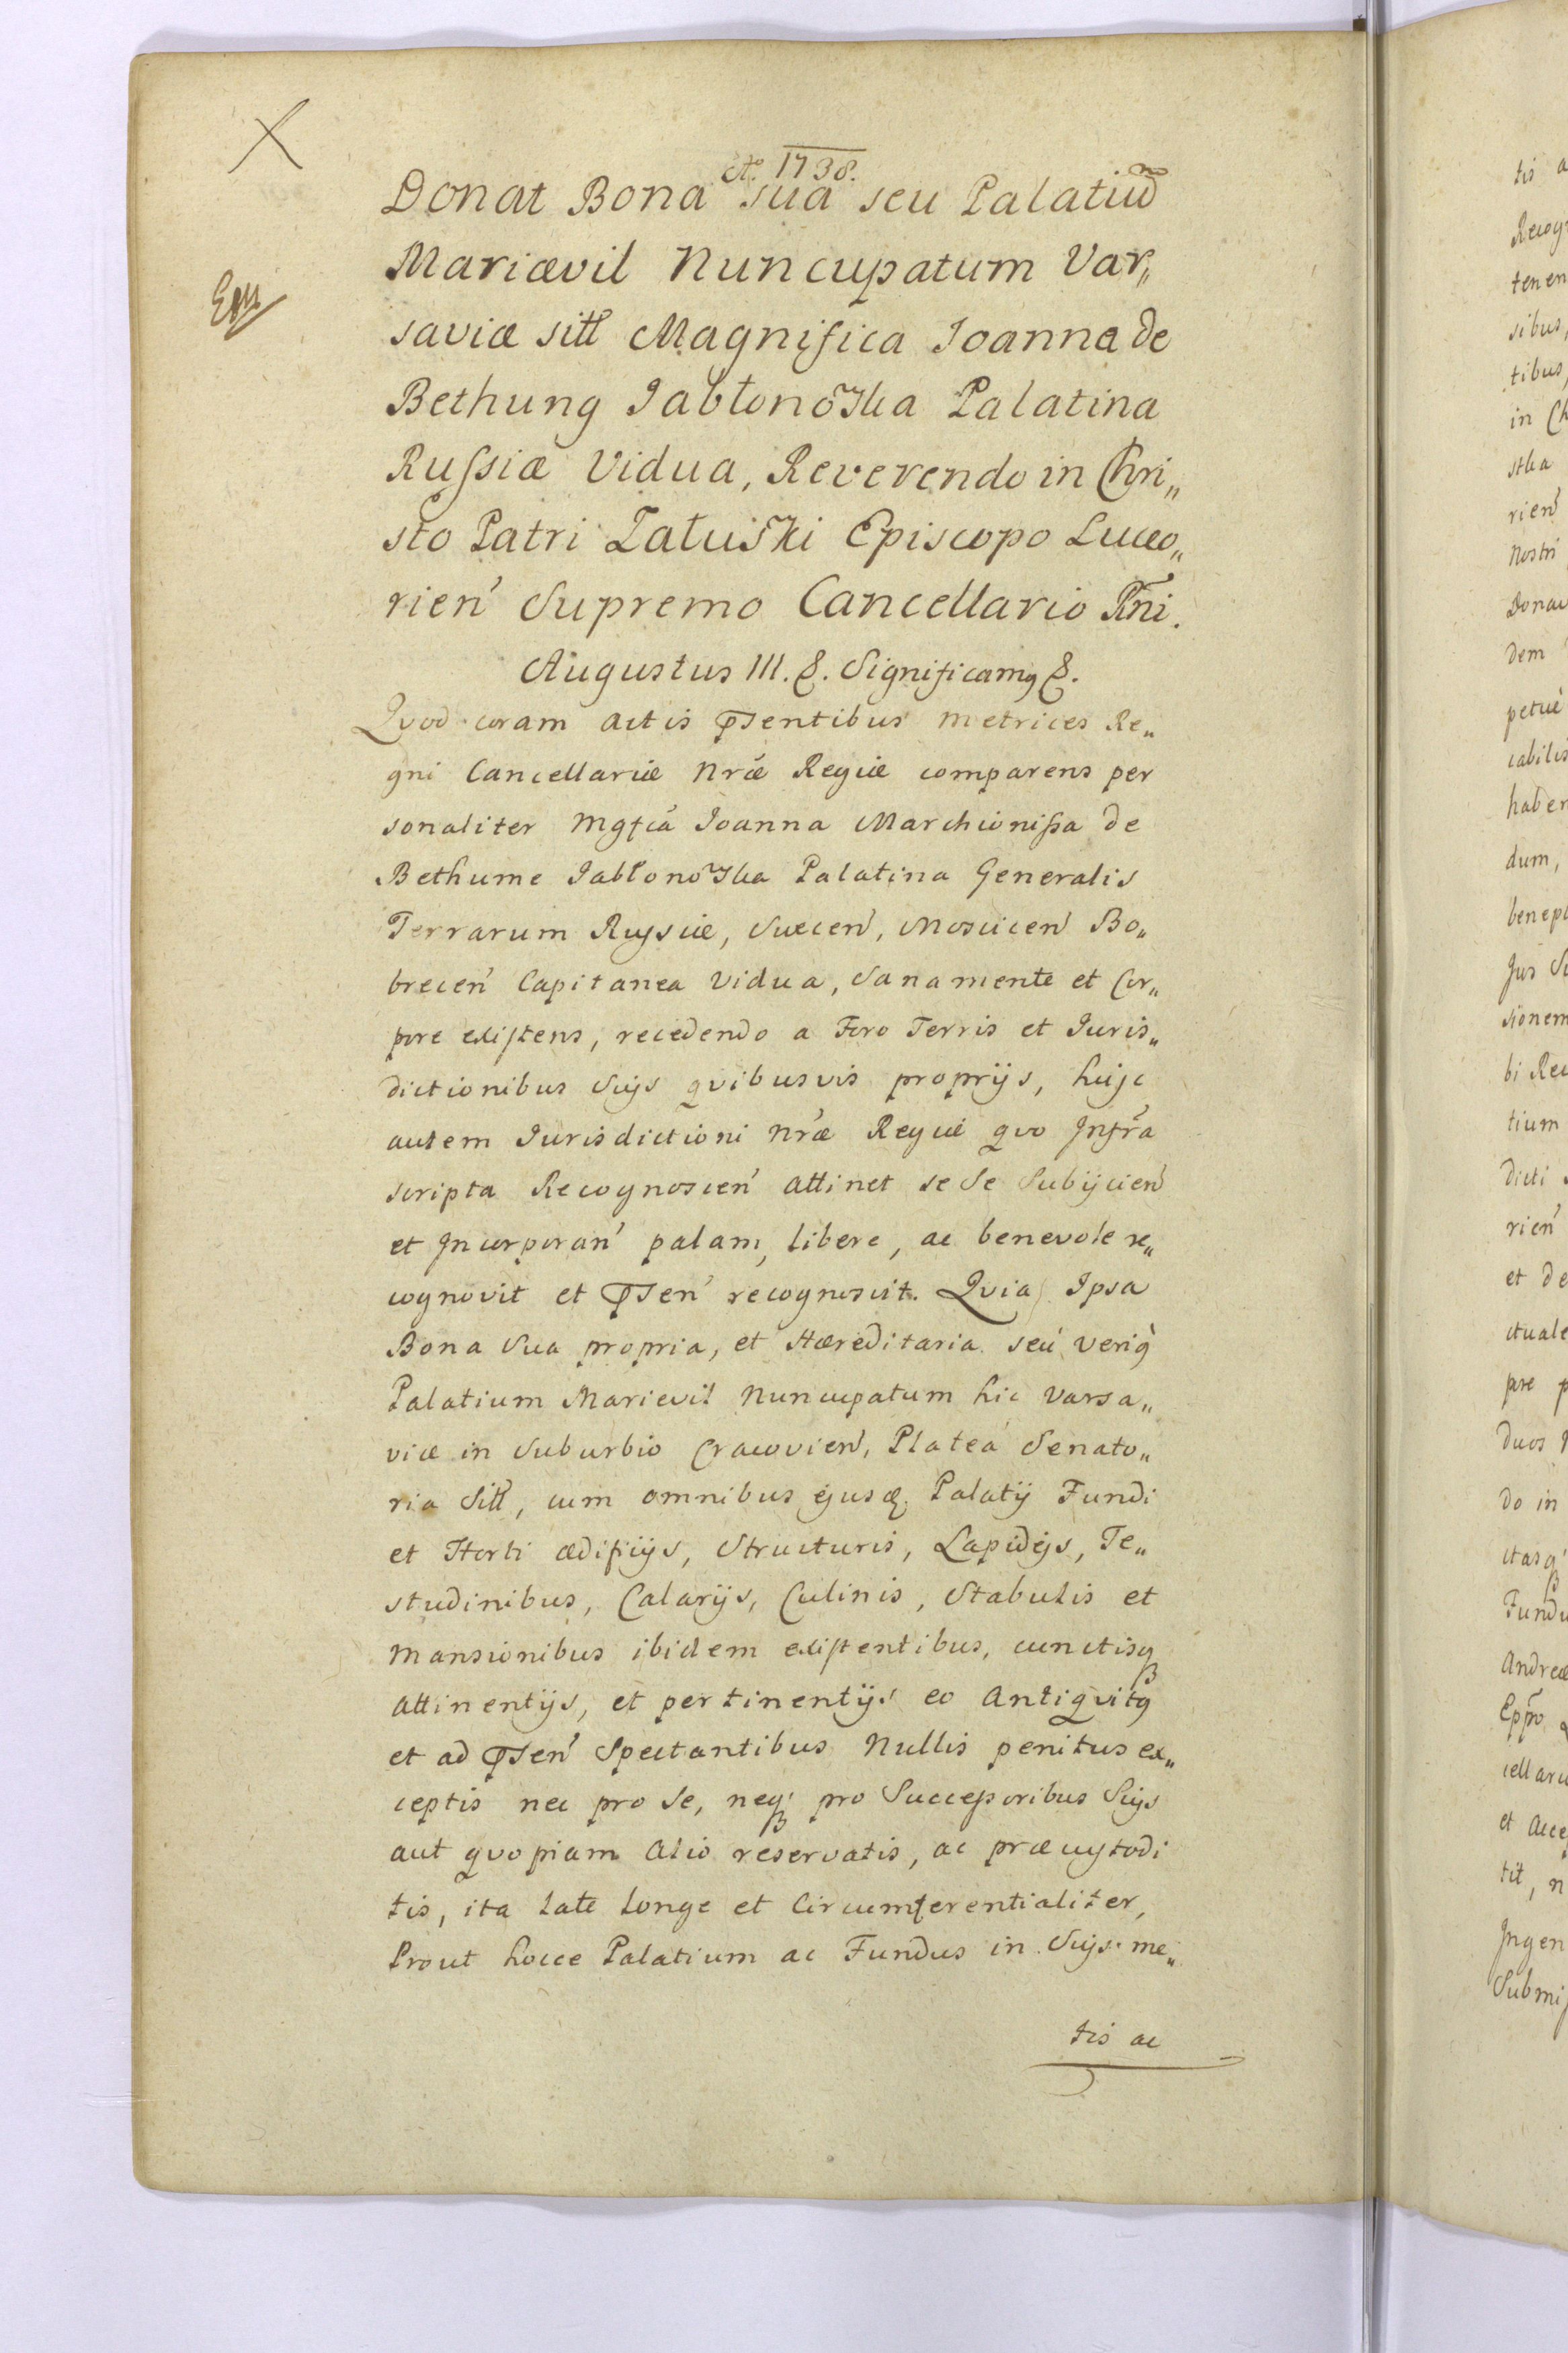 Ao. 1738.
Donat Bona sua seu Palatiū
Mariævil Nuncupatum Var„
saviæ sitt Magnifica Joanna de
Bethung Jabłonoska Palatina
Russiæ Vidua, Reverendo in Chri„
sto Patri Załuski Episcopo Luceo„
rien̄ Supremo Cancellario Rni.
Augustus III. &. Significamq &.
Qvod coram actis pñsentibus metrices Re„
gni Cancellariæ Nræ Regiæ comparens per
sonaliter Mgfca Joanna Marchionissa de
Bethume Jabłonoska Palatina Generalis
Terrarum Russiæ, Suecen̄, Moscicen̄ Bo„
brecen̄ Capitanea Vidua, Sana mente et Cor„
pore existens, recedendo a Foro Terris et Juris„
dictionibus Suijs qvibusvis proprijs, huic
autem Jurisdictioni Nræ Regiæ qvo Jnfra
scripta Recognoscen̄ attinet se se Subijcien̄
et Jncorporan̄ palam, libere, ac benevole re„
cognovit et pñsen̄ recognoscit. Qvia Ipsa
Bona Sua propria, et Hæreditaria seu veriq
Palatium Marievil Nuncupatum hic Varsa„
viæ in Suburbio Cracovien̄, Platea Senato„
ria Sitt, cum omnibus ejusq. Palatij Fundi
et Horti ædificijs, Structuris, Lapideis, Te„
studinibus, Calarijs, Culinis, Stabulis et
mansionibus ibidem existentibus, cunctisq
attinentijs, et pertinentijs eo Antiqvitq
et ad pñsen̄ Spectantibus Nullis penitus ex„
ceptis nec pro Se, neq pro Successoribus Suijs
aut qvopiam alio reservatis, ac præcustodi
tis, ita late longe et Circumferentialiter,
Prout hocce Palatium ac Fundus in Suijs me„
tis ac